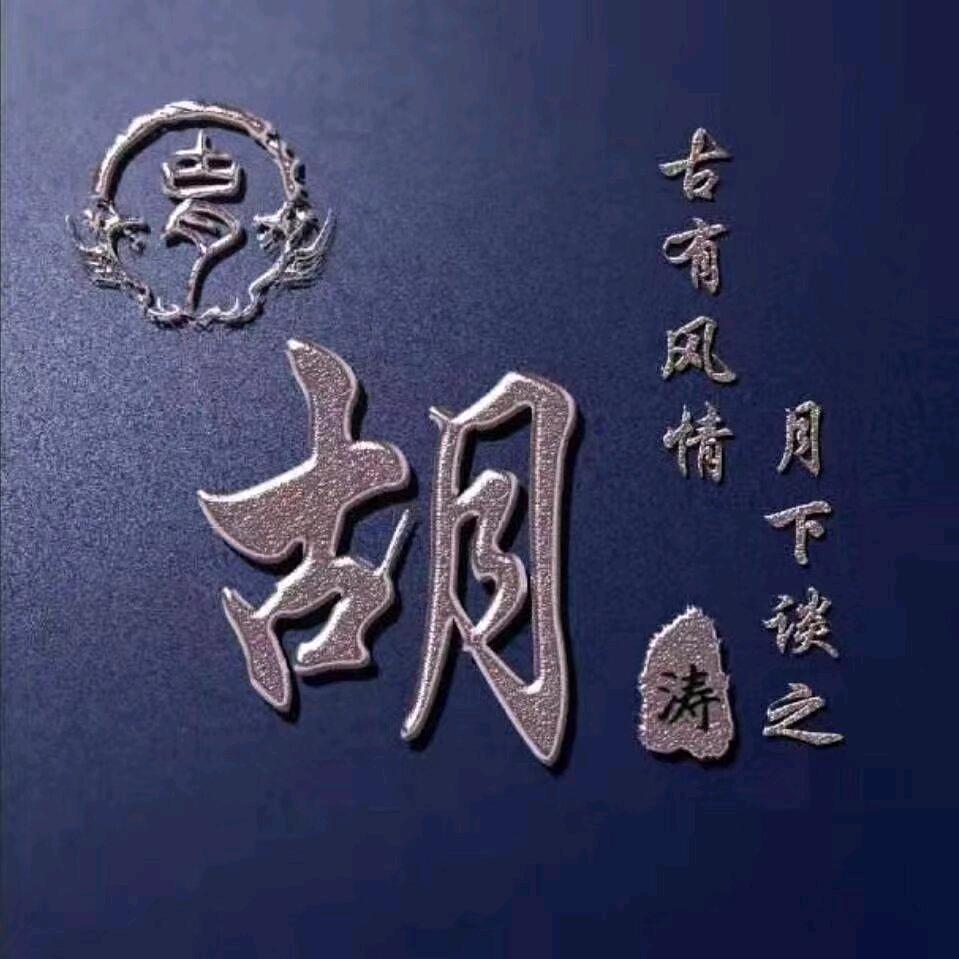 胡
古有风情
月下谈之
涛